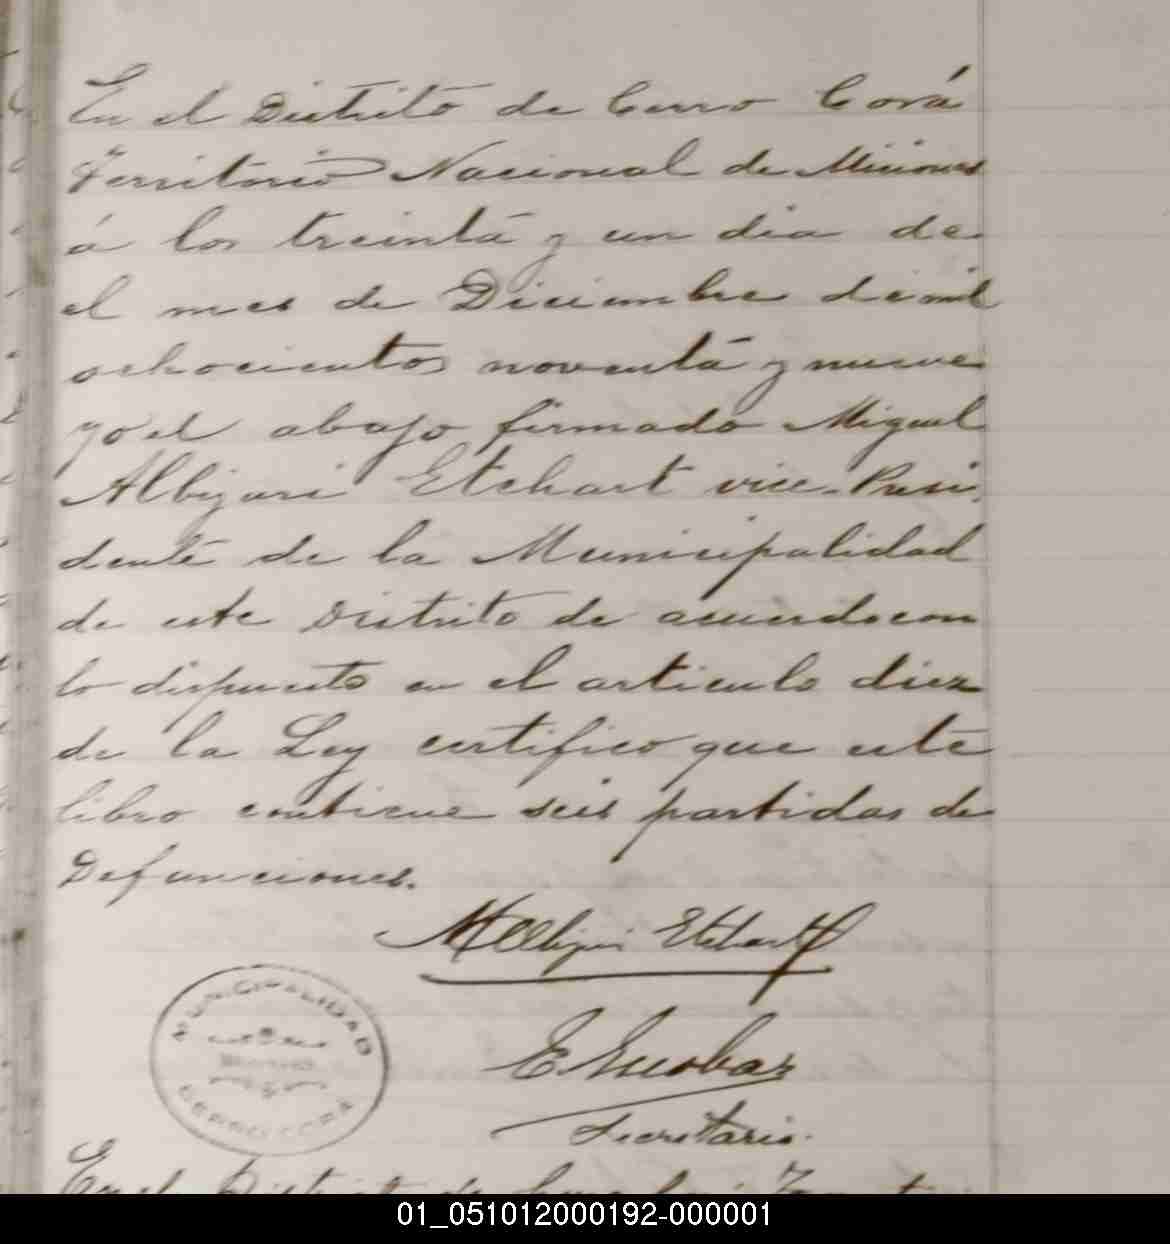 En el Distrito de Cerro Corá
Territorio Nacional de Miciones
á los treinta y un dia de
el mes de Diciembre de mil
ochocientos noventa y nueve
yo el abajo firmado Miguel
Albizuri Etchart vice-Presi
dente de la Municipalidad
de este Distrito de acuerdo con
lo dispuesto en el articulo diez
de la Ley certifico que este
libro contiene seis partidas de
Defunciones.
MAlbizuri Etchart
E. Escobar
Secretario.
MUNICIPALIDAD
CERRO CORÁ
En el Distrito de
01_051012000192-000001